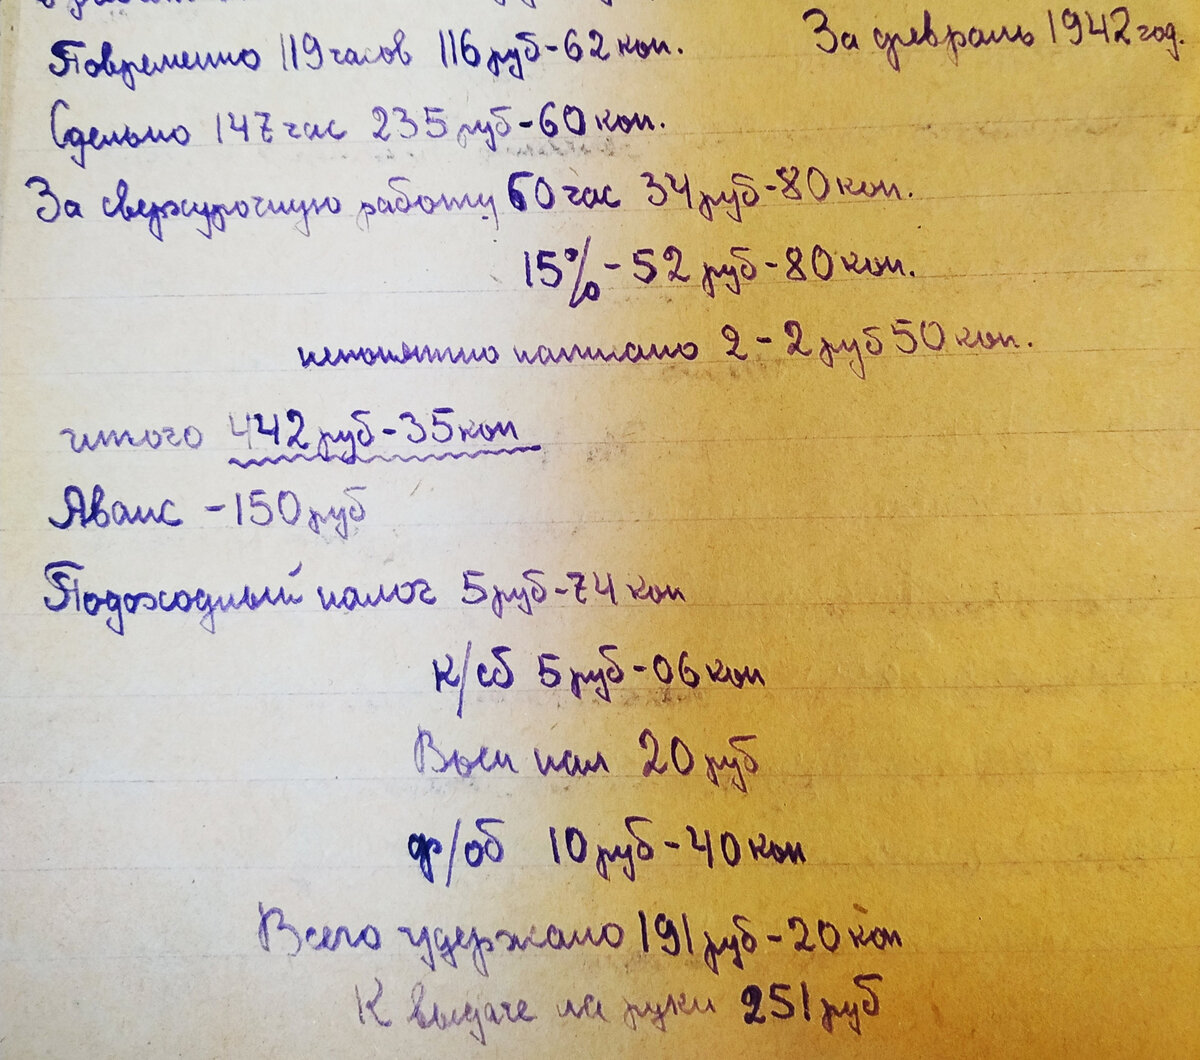 За февраль 1942 год.
Повременно 119 часов 116 руб-62 коп.
Сдельно 147 час 235 руб-60 коп.
За сверхурочную работу 60 час 34 руб-80 коп.
15%-52 руб-80 коп.
непонятно написано 2-2 руб 50 коп.
итого 442 руб-35 коп
Аванс -150 руб
Подоходный налог 5 руб-74 коп
к/сб 5 руб-06 коп
Воен нал 20 руб
ф/об 10 руб-40 коп
Всего удержано 191 руб-20 коп
К выдаче на руки 251 руб